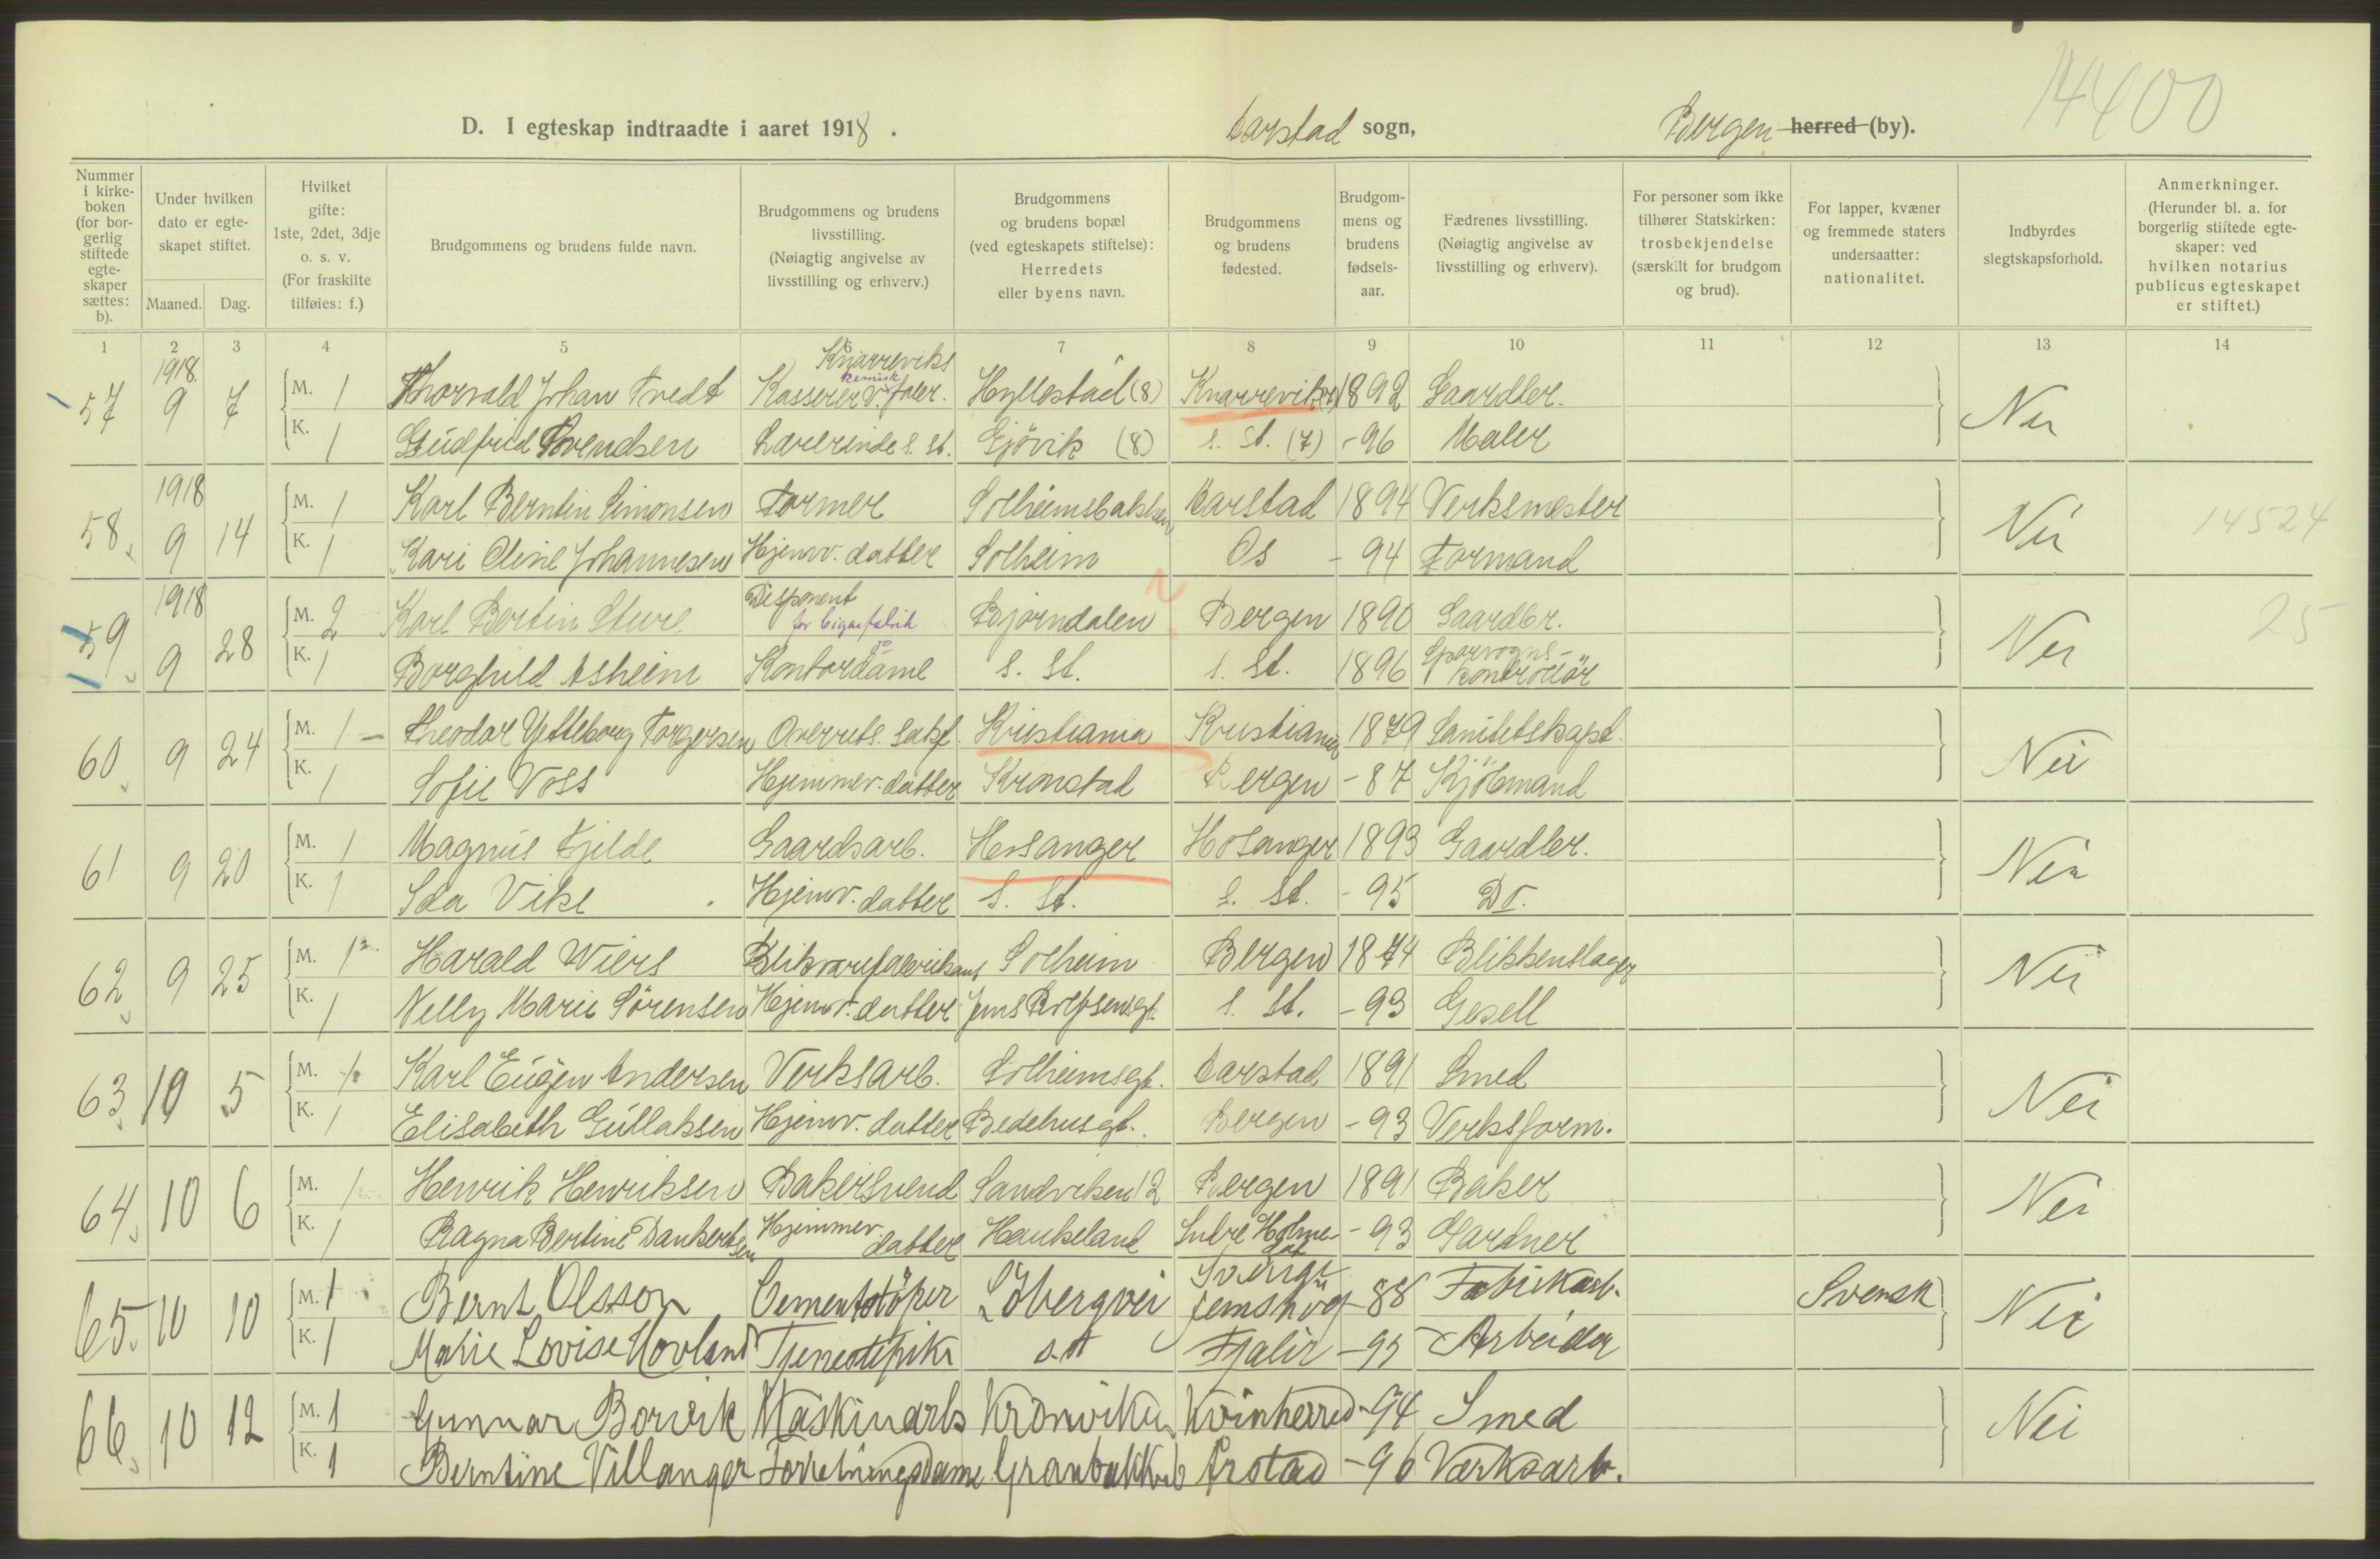 14400
D. I egteskap indtraadte i aaret 1918. Aarstad sogn, Bergen herred (by).
Nummer i kirke-boken (for bor-gerlig stiftede egte-skaper sættes: b).
Under hvilken dato er egte-skapet stiftet.
Maaned. Dag.
Hvilket gifte: 1ste, 2det, 3dje o. s. v. (For fraskilte tilføies: f.)
Brudgommens og brudens fulde navn.
Brudgommens og brudens livsstilling. (Nøiagtig angivelse av livsstilling og erhverv.)
Brudgommens og brudens bopæl (ved egteskapets stiftelse): Herredets eller byens navn.
Brudgommens og brudens fødested.
Brudgom-mens og brudens fødsels-aar.
Fædrenes livsstilling. (Nøiagtig angivelse av livsstilling og erhverv).
For personer som ikke tilhører Statskirken: trosbekjendelse (særskilt for brudgom og brud).
For lapper, kvæner og fremmede staters undersaatter: nationalitet.
Indbyrdes slegtskapsforhold.
Anmerkninger. (Herunder bl. a. for borgerlig stiftede egte-skaper: ved hvilken notarius publicus egteskapet er stiftet.)
1 2 3 4 5 6 7 8 9 10 11 12 13 14
1918 Knarreviks
kemisk
57 9 7 M. 1 Thorvald Johan Tvedt Kasserer v. faer. Hyllestad (8) Knarrevik 1892 Gaardbr. Nei
K. 1 Gudfrid Svendsen Lærerinde s. st. Gjövik (8) s. st. (7) -96 Maler
1918
58. 9 14 M. 1 Karl Berntin Simonsen Former Solheimsbakken Aarstad 1894 Verksmester Nei 14524
K. 1 Kari Oline Johannesen Hjemv. datter Solheim Os - 94 Formand
1918 Disponent
59 9 28 M. 2 Karl Bertin Sture for Cigarfabrik Björndalen Bergen 1890 Gaardbr. Nei 25
K. 1 Borghild Asheim Kontordame s. st. s. st. 1896 Sporvogns-kontrollör
60 9 24 M. 1 - Theodor Yetteborg Torgersen Overrets. sakf. Kristiania Kristiania 1879 Sanitetskapt. Nei
K. 1 Sofie Voss Hjemmev. datter Kronstad Bergen -87 Kjöbmand
61 9 20 M. 1 Magnus Fjelde Gaardsarb. Hosanger Hosanger 1893 Gaardbr. Nei
K. 1 Ida Vike Hjemv. datter s. st. s. st. - 95 Do.
62 9 25 M. 1 Harald Wiers Blikvarefabrikant Solheim Bergen 1874 Blikkenslager Nei
K. 1 Nelly Marie Sörensen Hjemv. datter Jens Rolfsensgt. s. st. -93 Gesell
63. 10 5 M. 1 Karl Eugen Andersen Verksarb. Solheimsgt. Aarstad 1891 Smed Nei
K. 1 Elisabeth Gullaksen Hjemv. datter Bedehusgt. Bergen -93 Verksform.
64. 10 6 M. 1 Henrik Henriksen Bakersvend Sandviken 12 Bergen 1891 Baker Nei
K. 1 Ragna Bertine Dankertsen Hjemmev. datter Haukeland Indre Holmedal -93 Gardner
Sverige
65. 10 10 M. 1 Bernt Olsson Cementstöper Löbergvei Jemshög -88 Fabrikarb. Svensk Nei
K. 1 Marie Lovise Hovland Tjenestepike s. st Fjaler -95 Arbeider
66. 10 12 M. 1 Gunnar Borvik Maskinarb Kronviken Kvinherred -94 Smed Nei
K. 1 Berntine Villanger Forretningsdame Granbakken Årstad -96 Værksarb.